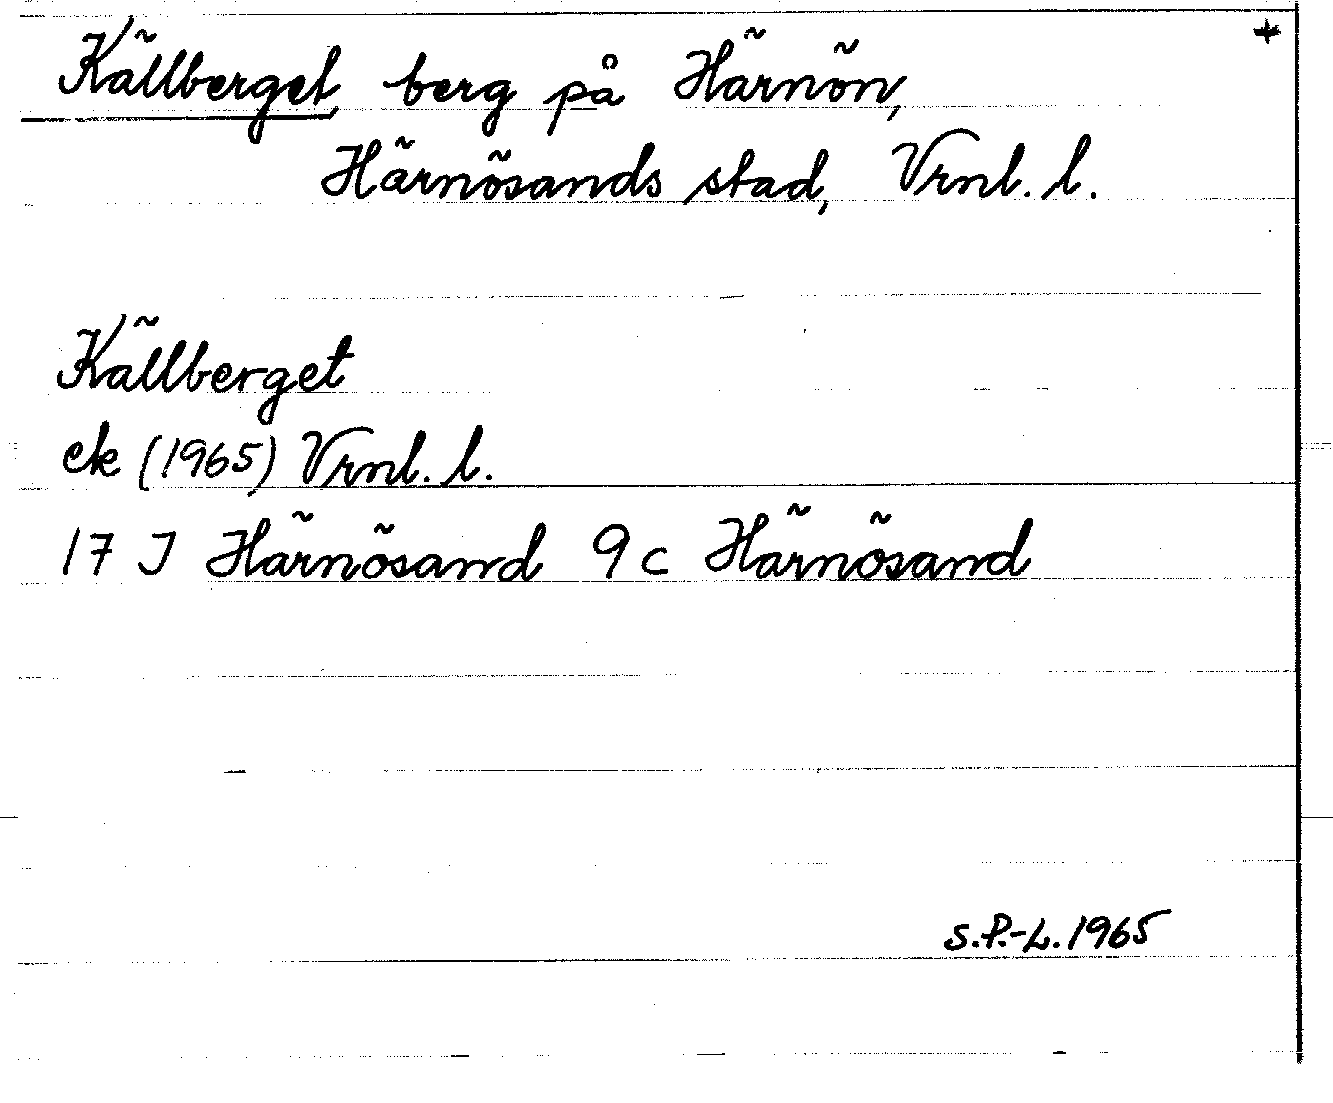 +
Källberget, berg på Härnön,
Härnösands stad, Vrnl. l.
Källberget
ek (1965) Vrnl. l.
17 J Härnösand 9 c Härnösand
S.P.-L. 1965